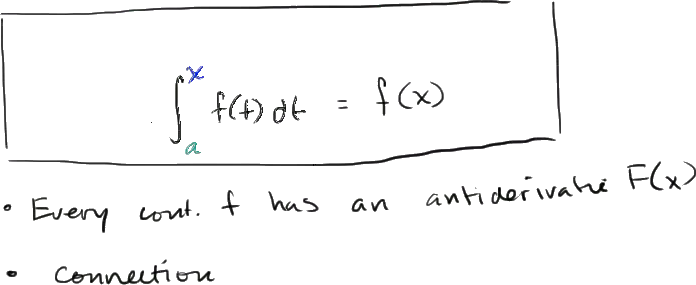 ∫ₐˣ f(t) dt = f(x)
• Every cont. f has an antiderivative F(x)
• Connection